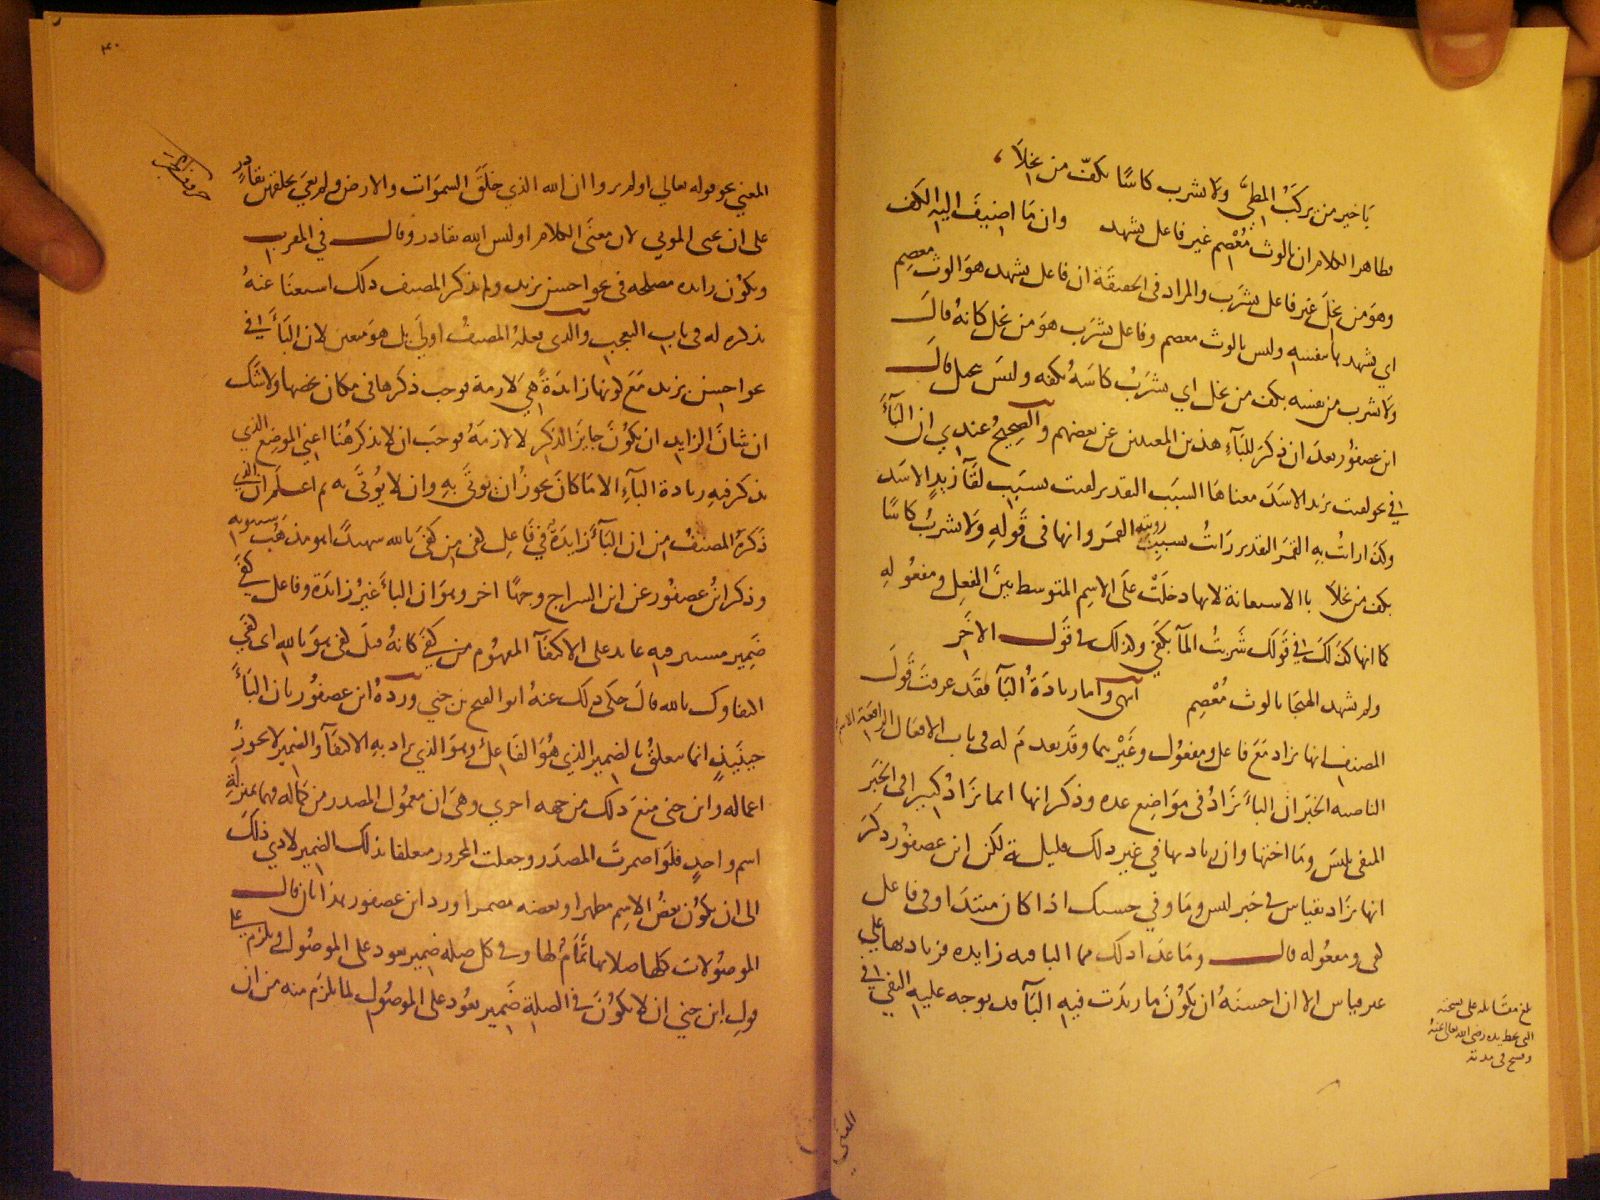 يا خير من يركب المطي ولا يشرب كاسا بكف من بخلا
فظاهر الكلام ان بالوث معصم غير فاعل يشهد وان ما اضيف اليه الكف
وهو من بخل غير فاعل يشرب والمراد في الحقيقة ان فاعل يشهد هو الوث معصم
اي يشهدها بنفسه وليس بالوث معصم وفاعل يشرب هو من بخل كانه قال
ولا يشرب من نفسه بكف من بخل اي يشرب كاسه بكفه وليس بخل قال
ابن عصفور بعد ان ذكر للباء هذين المعنيين عن بعضهم والصحيح عندي ان الباء
في نحو لقيت بزيد الاسد معناها السبب التقدير لقيت بسبب لقاء زيد الاسد
وكذا رايت به القمر التقدير رايت بسبب رويته القمر وانها في قوله ولا يشرب كاسا
بكف من بخلا باء الاستعانة لانها دخلت على الاسم المتوسط بين الفعل ومفعوله
كما انها كذلك في قولك شربت الماء بكفي وكذلك في قول الاخر
ولم يشهد الهيجا بالوث معصم انتهى واما زيادة الباء فقد عرفت قول
المصنف انها تزاد مع فاعل ومفعول وغيرهما وقد تقدم له في باب الافعال الرافعة الاسم
الناصبة الخبر ان الباء تزاد في مواضع عدة وذكر انها انما تزاد كثيرا في الخبر
المنفي بليس وما اختها وان زيادتها في غير ذلك قليلة لكن ابن عصفور ذكر
انها تزاد بقياس في خبر ليس وما وفي حسبك اذا كان مبتدا وفي فاعل
كفى ومفعوله قال وما عدا ذلك مما الباء فيه زايدة فزيادتها علي
غير قياس الا ان احسنه ان يكون ما زيدت فيه الباء قد توجه عليه النفي في
بلغ مقابلة على نسخته
التي بخط يده رضي الله تعالى عنه
المعني
٤٠
المعني نحو قوله تعالي اولم يروا ان الله الذي خلق السموات والارض ولم يعي بخلقهن بقادر
على ان يحي الموتي لان معنى الكلام اوليس الله بقادر وقال في المغرب
وتكون زايدة مصلحة في نحو احسن بزيد ولم يذكر المصنف ذلك استغنا عنه
بذكره له في باب التعجب والذي فعله المصنف اولي بل هو متعين لان الباء في
نحو احسن بزيد مع كونها زايدة هي لازمة فوجب ذكرها في مكان يخصها ولا شك
ان شان الزايد ان يكون جايز الذكر لا لازمه فوجب ان لا يذكر هنا اعني الموضع الذي
يذكر فيه زيادة الباء الا ما كان يجوز ان يوتى به وان لا يوتى به ثم اعلم ان الذي
ذكره المصنف من ان الباء زايدة في فاعل كفى من كفى بالله شهيدا هو مذهب سيبويه
وذكر ابن عصفور عن ابن السراج وجها اخر وهو ان الباء غير زائدة وفاعل كفى
ضمير مستتر فيه عايد على الاكتفاء المفهوم من كفى كانه قيل كفى هو بالله اي كفى
اكتفاوك بالله قال حكى ذلك عنه ابو الفتح بن جني ورده ابن عصفور بان الباء
حينيذ انما تتعلق بالضمير الذي هو الفاعل وهو الذي يراد به الاكتفاء والضمير لا يجوز
اعماله وابن جني منع ذلك من جهه اخري وهي ان معمول المصدر من كماله فهما بمنزلة
اسم واحد فلو اضمرت المصدر وجعلت المجرور متعلقا بذلك الضمير لادي ذلك
الى ان يكون بعض الاسم مظهرا وبعضه مضمرا ورد ابن عصفور هذا بان قال
الموصولات كلها صلاتها تمام لها وفي كل صله ضمير يعود على الموصول فيلزم على
قول ابن جني ان لا يكون في الصلة ضمير يعود على الموصول لما يلزم منه من ان